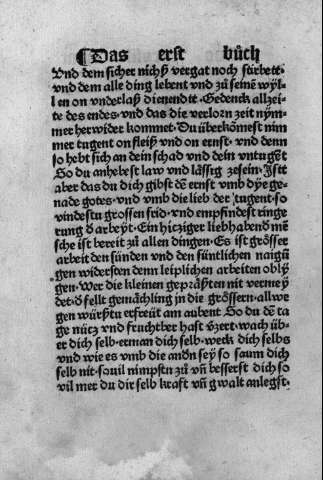 ¶Das erst bůch
Vnd dem sicher nichß vergat noch stirbett.
vnd dem alle ding lebent vnd zů seinē wyl/
len on vnderlaß dienendtt. Gedenck allzei/
te des endes. vnd das die verlorn zeit nym/
mer herwider kommet. Du überkōmest nim
mer tugent on fleiß vnd on ernst. vnd denn
so hebt sich an dein schad vnd dein vntugēt
So du anhebest law vnd lässig zesein. Istt
aber das du dich gibst dē ernst vmb dye ge-
nade gotes. vnd vmb die lieb der tugent. so
vindestu grossen frid. vnd empfindest ringe
rung d arbeyt. Ein hitziger liebhabend mē
sche ist bereit zů allen dingen. Es ist grösser
arbeit den sünden vnd den süntlichen naigū
gen widersten denn leiplichen arbeiten oblig
gen. Wer die kleinen geprästen nit vermey
det. d fellt gemächling in die grössern. allwe
gen würstu erfreüt am aubent So du dē ta
ge nütz vnd fruchtber hast v̄zert. wach üb-
er dich selb. erman dich selb. weck dich selbs
vnd wie es vmb die andn̄ sey so saum dich
selb nit. souil nimpstu zů vn̄ besserst dich so
vil mer du dir selb kraft vn̄ gwalt anlegst.